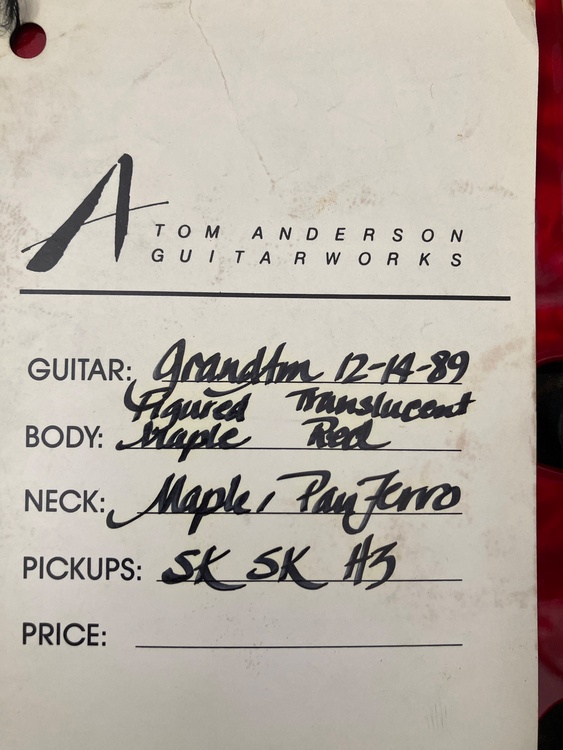 TOM ANDERSON
GUITARWORKS
GUITAR: Grand Am 12-14-89
Figured Translucent
BODY: Maple Red
NECK: Maple / Pau Ferro
PICKUPS: SK SK H3
PRICE: